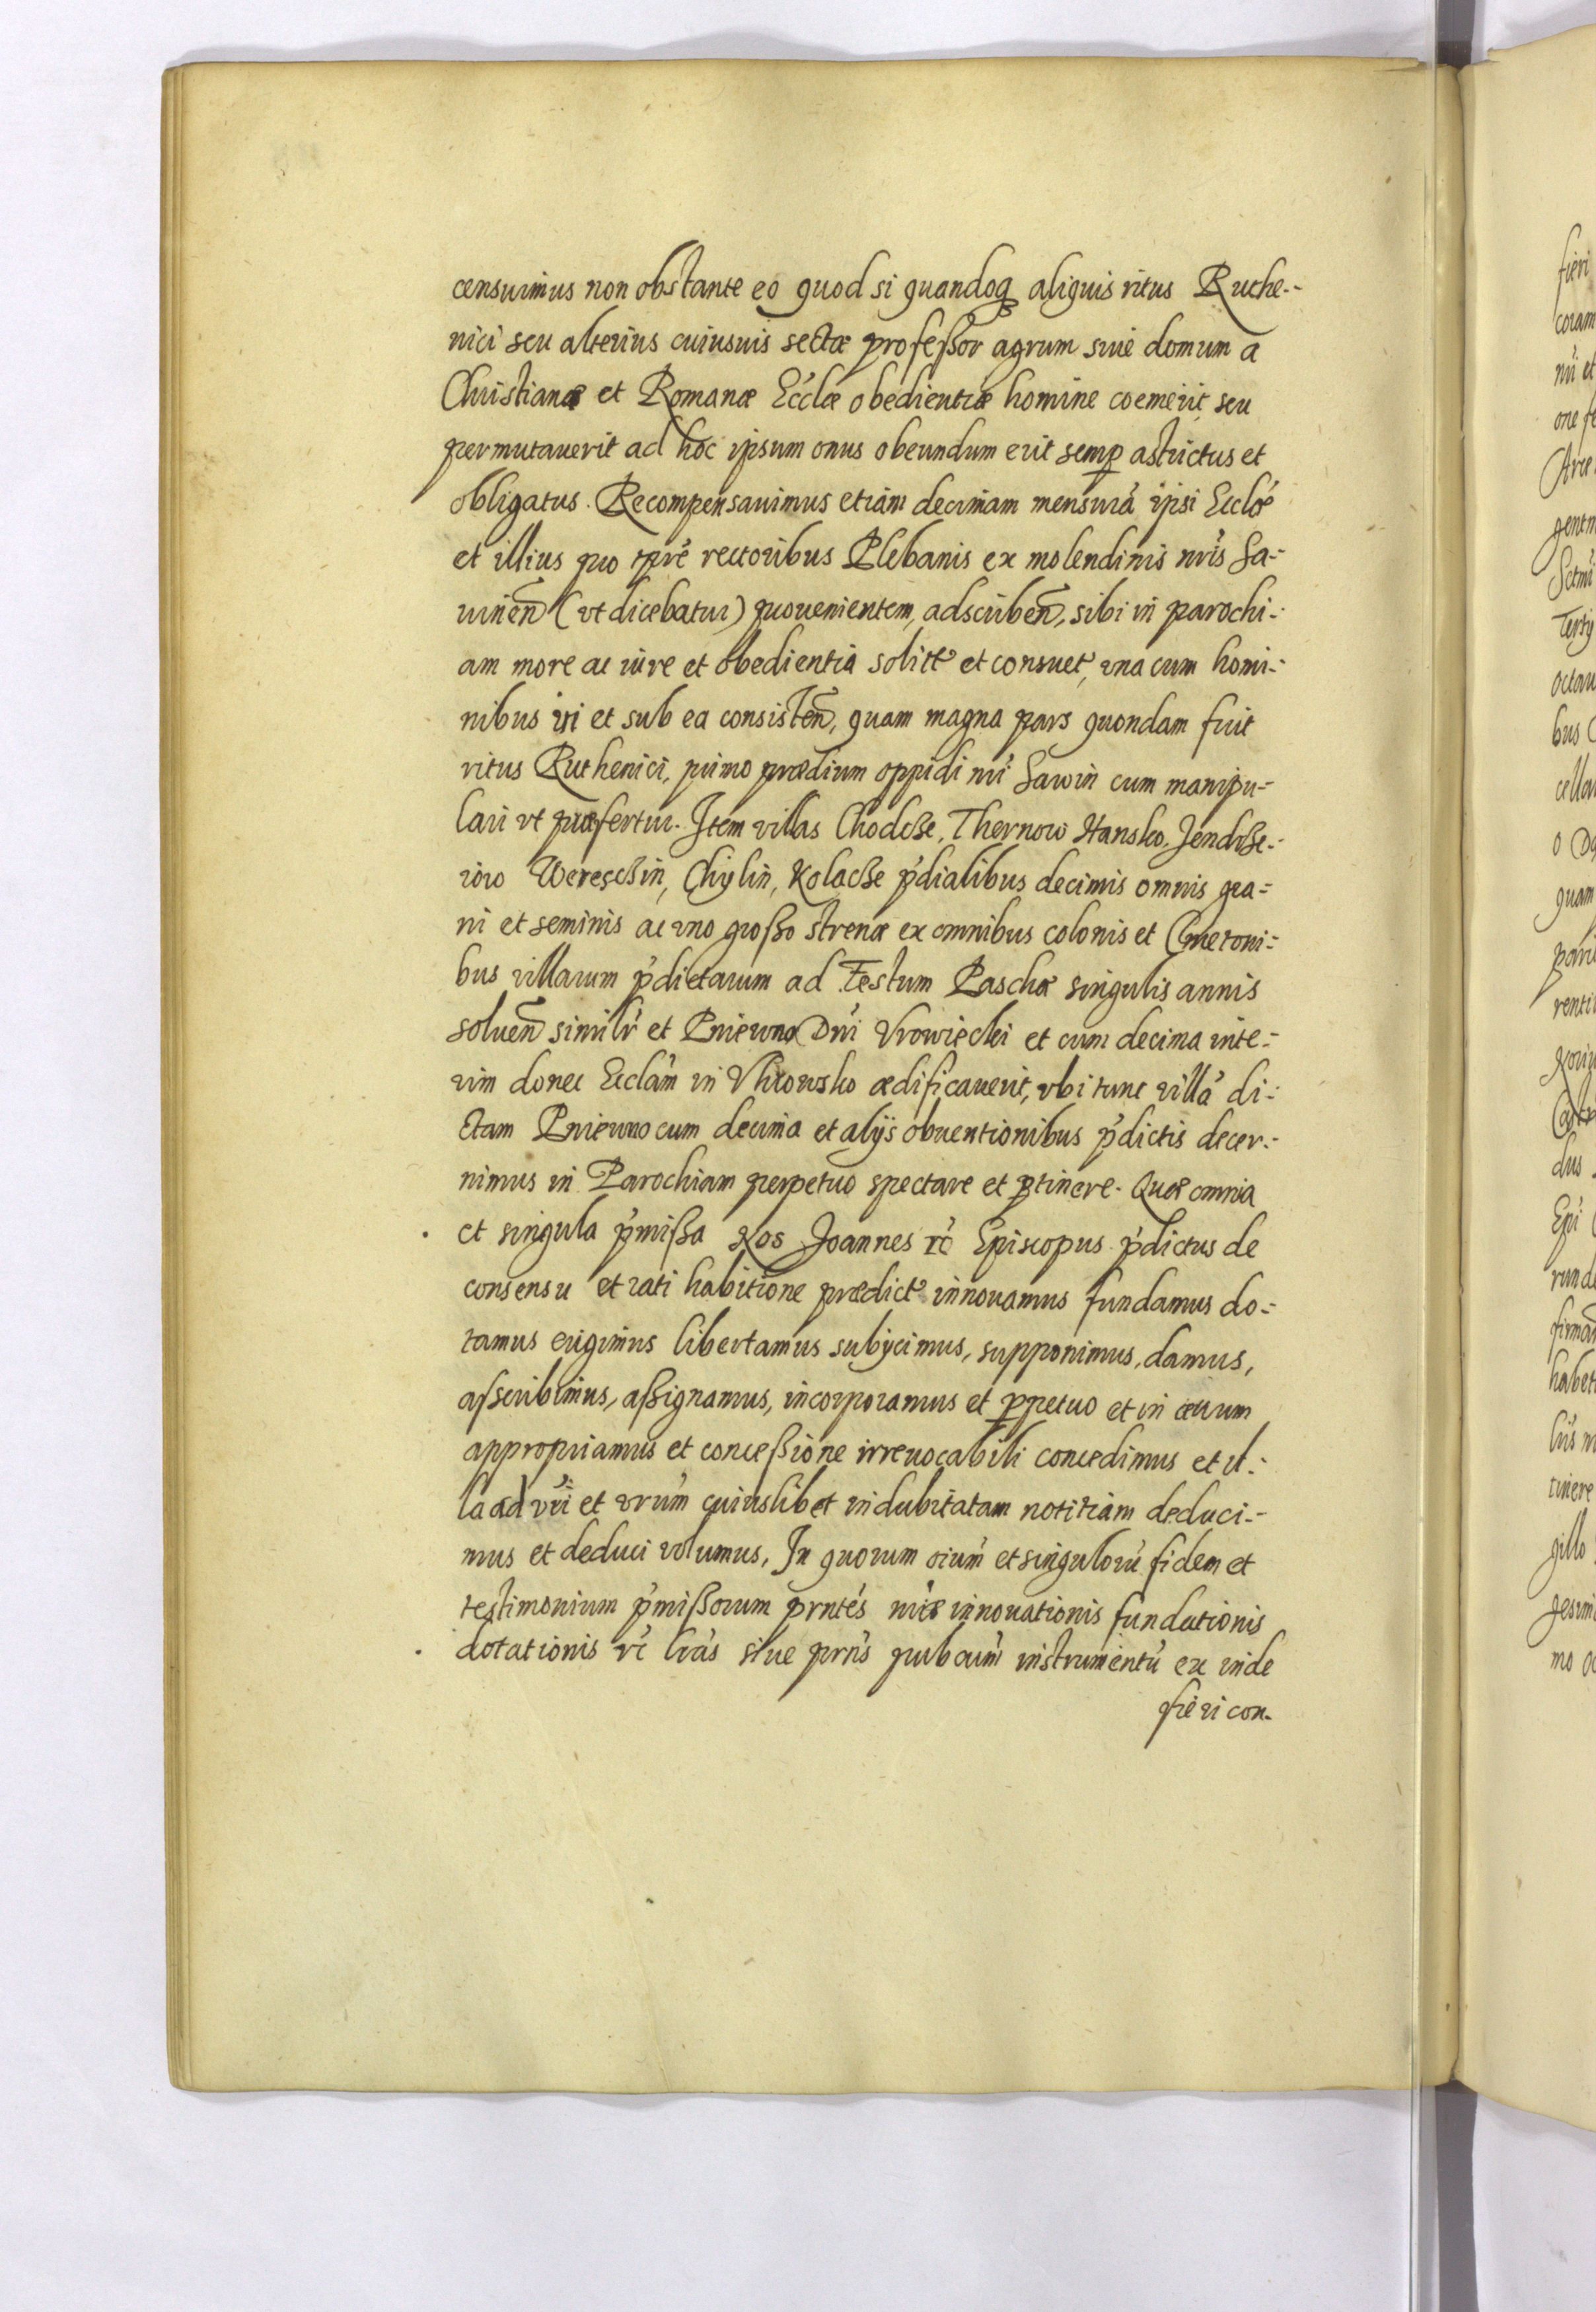 censuimus non obstante eo quod si quandoq aliquis ritus Ruthe-
nici seu alterius cuiusuis sectæ professor agrum siue domum a
Christianæ et Romanæ Ecclæ obedientiæ homine coemerit seu
permutauerit ad hoc ipsum onus obeundum erit semp astrictus et
obligatus. Recompensauimus etiam decimam mensurá ipsi Ecclæ
et illius pro tpre rectoribus Plebanis ex molendinis nris Sa-
uinen (vt dicebatur) prouenientem, adscriben, sibi in parochi-
am more ac iure et obedientia solitt et consuet, vna cum homi-
nibus in et sub ea consisten, quam magna pars quondam fuit
ritus Ruthenici, primo prædium oppidi nri Sawin cum manipu-
lari vt præfertur. Item villas Chodcze, Thernow Hansko, Jendrze-
iow Wereschin, Chylin, Kolacze pdialibus decimis omnis gra-
ni et seminis ac vno grosso strenæ ex omnibus colonis et Cmetoni-
bus villarum pdictarum ad Festum Paschæ singulis annis
soluen similr et Pniewno Dni Vrowiecki et cum decima inte-
rim donec Ecclam in Vhrowsko ædificauerit, vbi tunc villá di-
ctam Pniewno cum decima et alijs obuentionibus pdictis decer-
nimus in Parochiam perpetuo spectare et ptinere. Quæ omnia
et singula pmissa Nos Joannes rc Episcopus pdictus de
consensu et rati habitione prædict innouamus fundamus do-
tamus erigimus libertamus subijcimus, supponimus, damus,
asscribimus, assignamus, incorporamus et ppetuo et in æuum
appropriamus et concessione irreuocabili concedimus et il-
la ad vri et vrum cuiuslibet indubitatam notitiam deduci-
mus et deduci volumus, In quorum oium et singulorú fidem et
testimonium pmissorum prntes nræ innouationis fundationis
dotationis rc lras siue prns publicum instrumentú ex inde
fieri con-